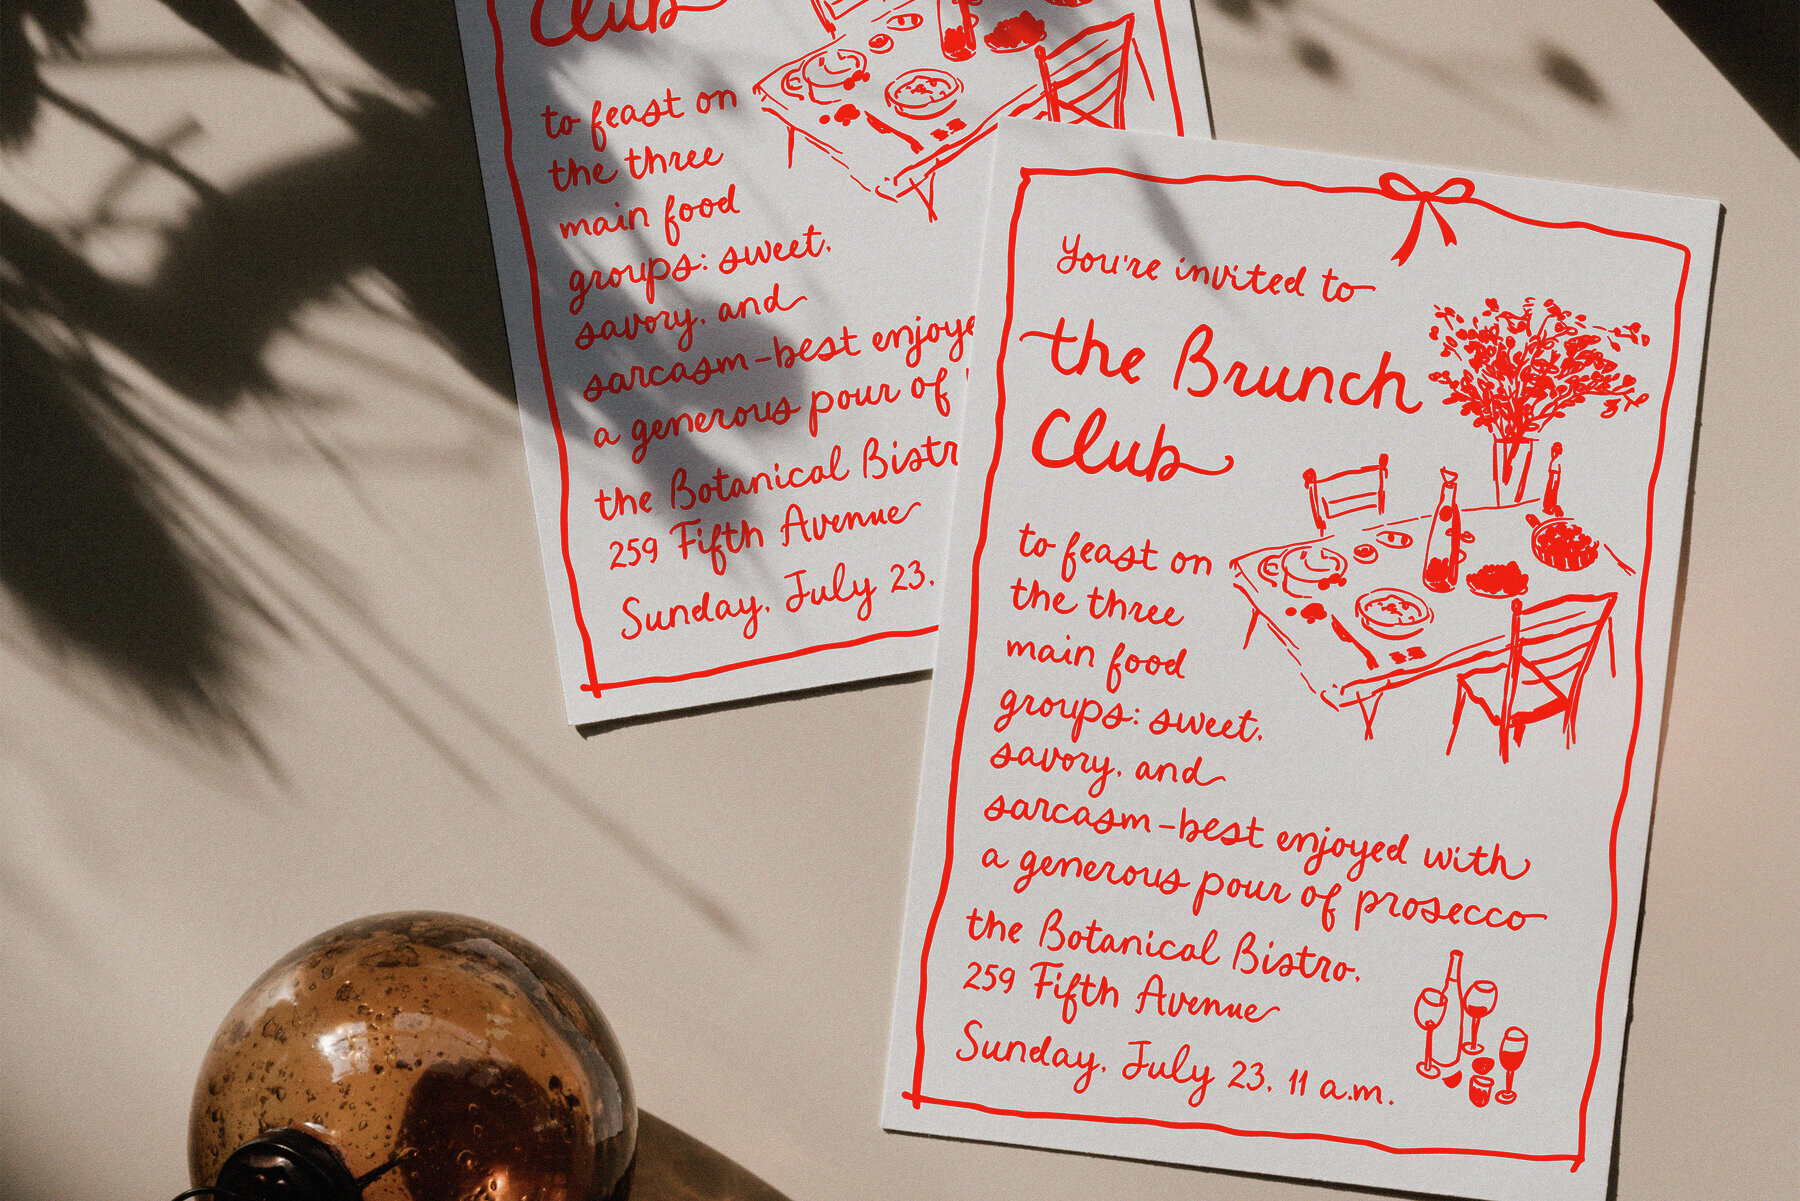 Club
to feast on
the three
main food
groups: sweet,
savory, and
sarcasm-best enjoye
a generous pour of
the Botanical Bistr
259 Fifth Avenue
Sunday, July 23,
You're invited to
the Brunch
Club
to feast on
the three
main food
groups: sweet,
savory, and
sarcasm-best enjoyed with
a generous pour of prosecco
the Botanical Bistro,
259 Fifth Avenue
Sunday, July 23, 11 a.m.